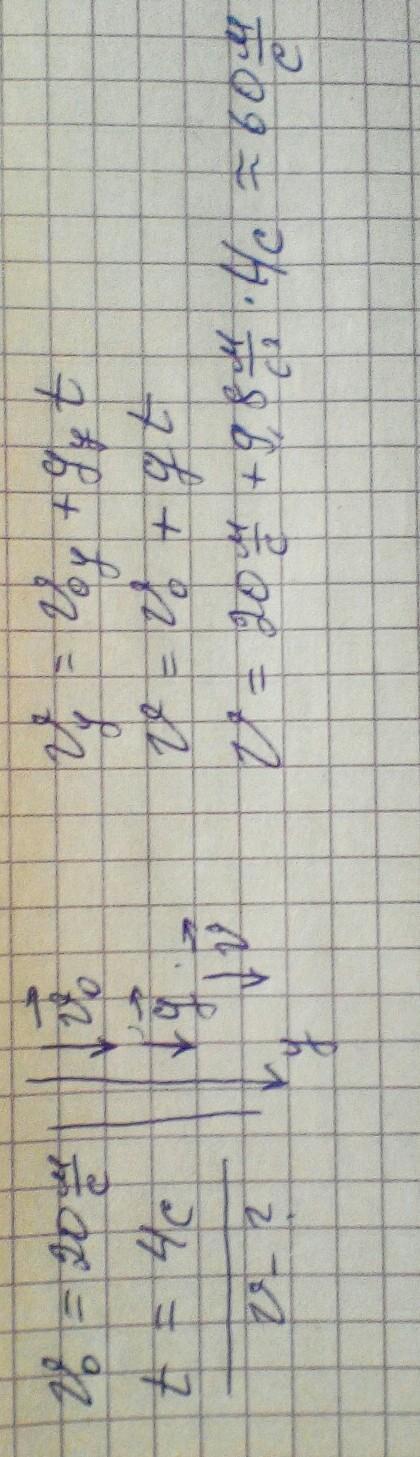 v₀ = 20 м/с
t = 4с
v - ?
v⃗₀
g⃗
v⃗
y
v_y = v₀y + g_y t
v = v₀ + gt
v = 20 м/с + 9,8 м/с² · 4с ≈ 60 м/с